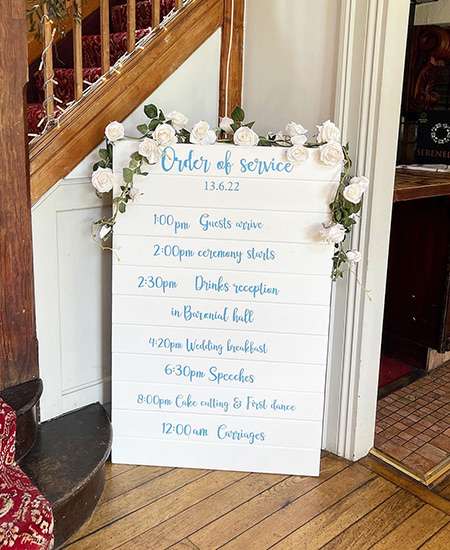 Order of service
13.6.22
1:00pm Guests arrive
2:00pm ceremony starts
2:30pm Drinks reception
in Baronial hall
4:20pm Wedding breakfast
6:30pm Speeches
8:00pm Cake cutting & First dance
12:00am Carriages